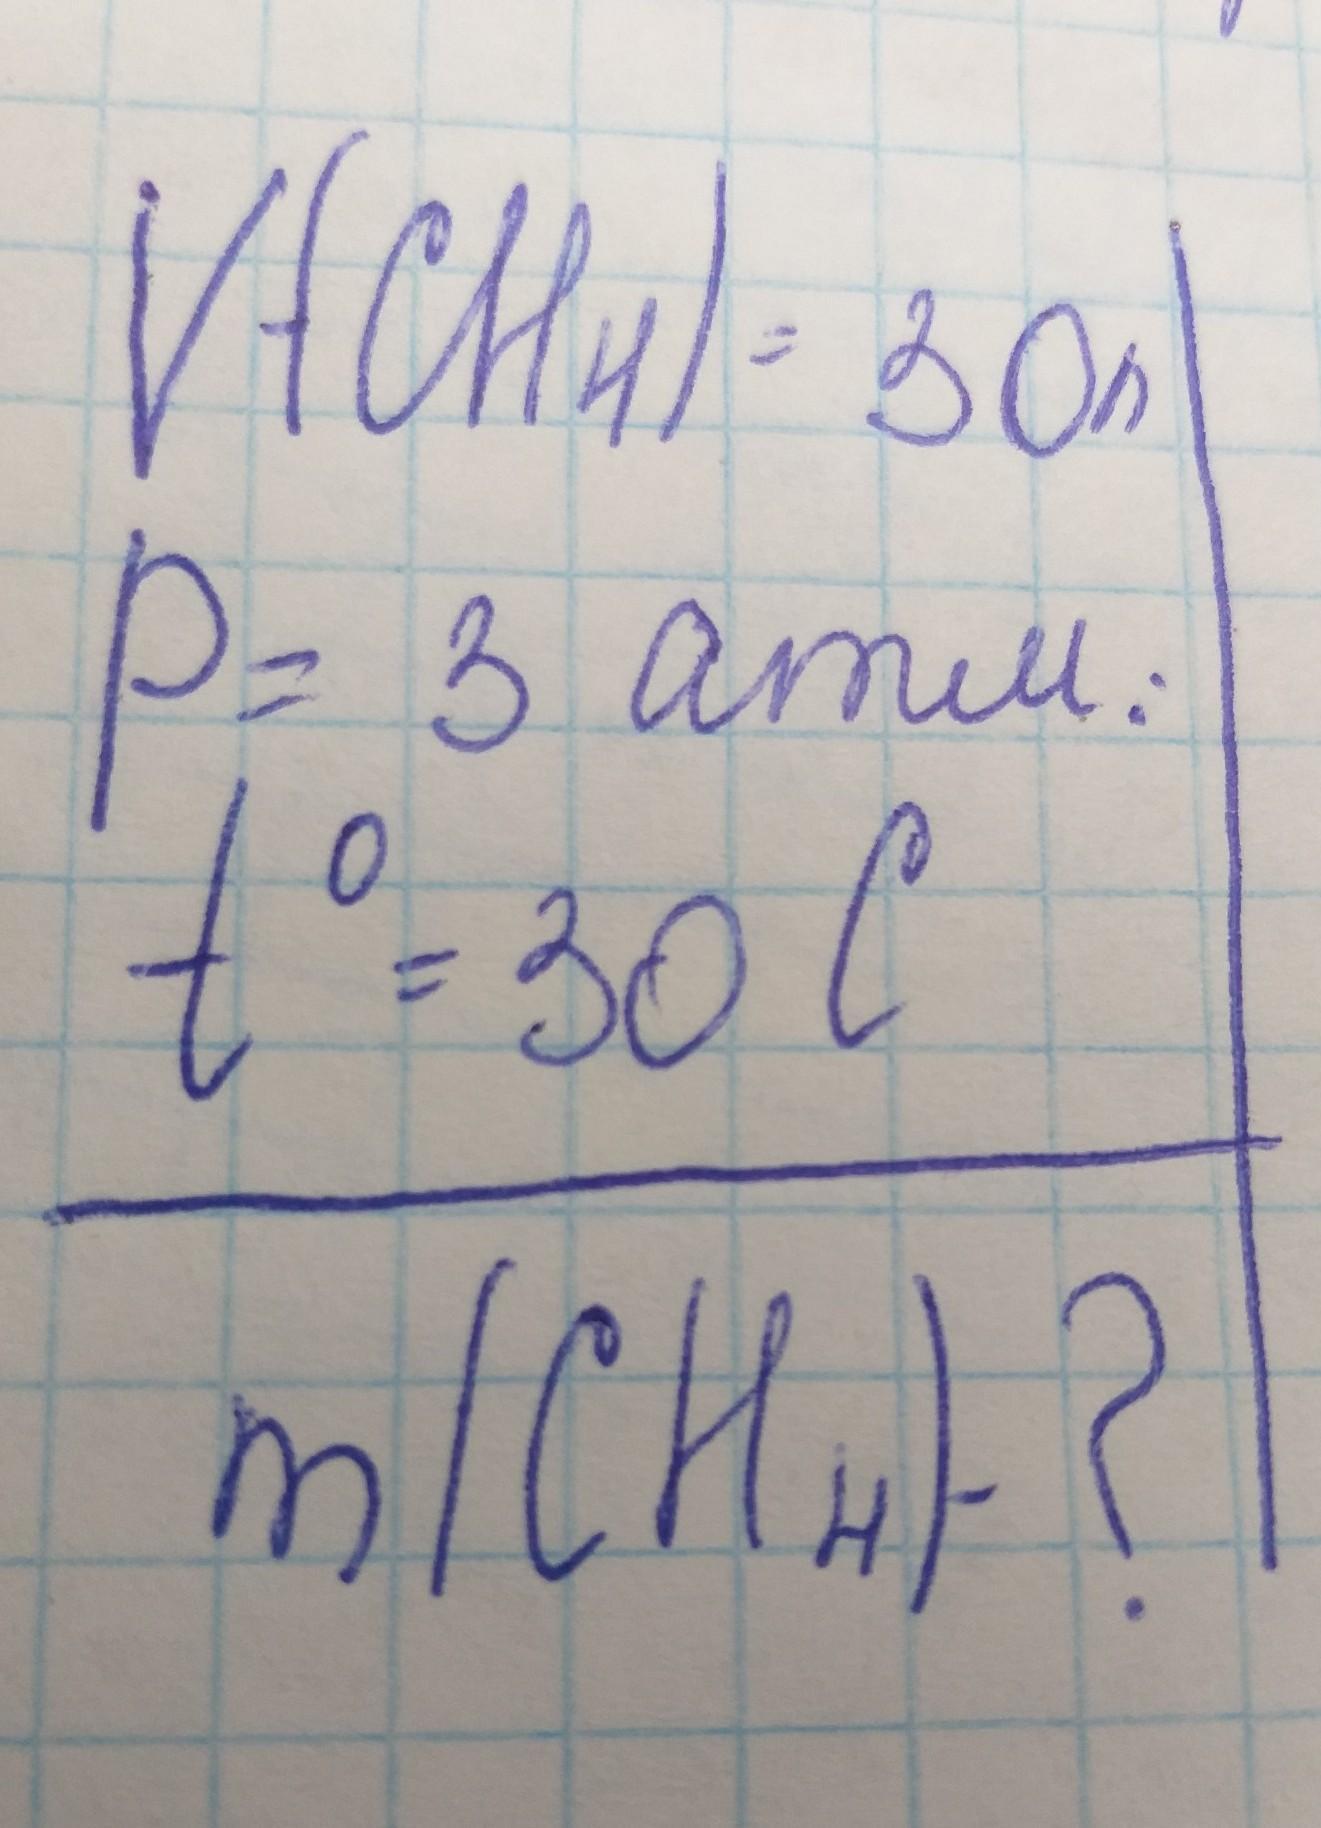 V(CH₄) = 30л
P = 3 атм.
t° = 30 C
m(CH₄) - ?